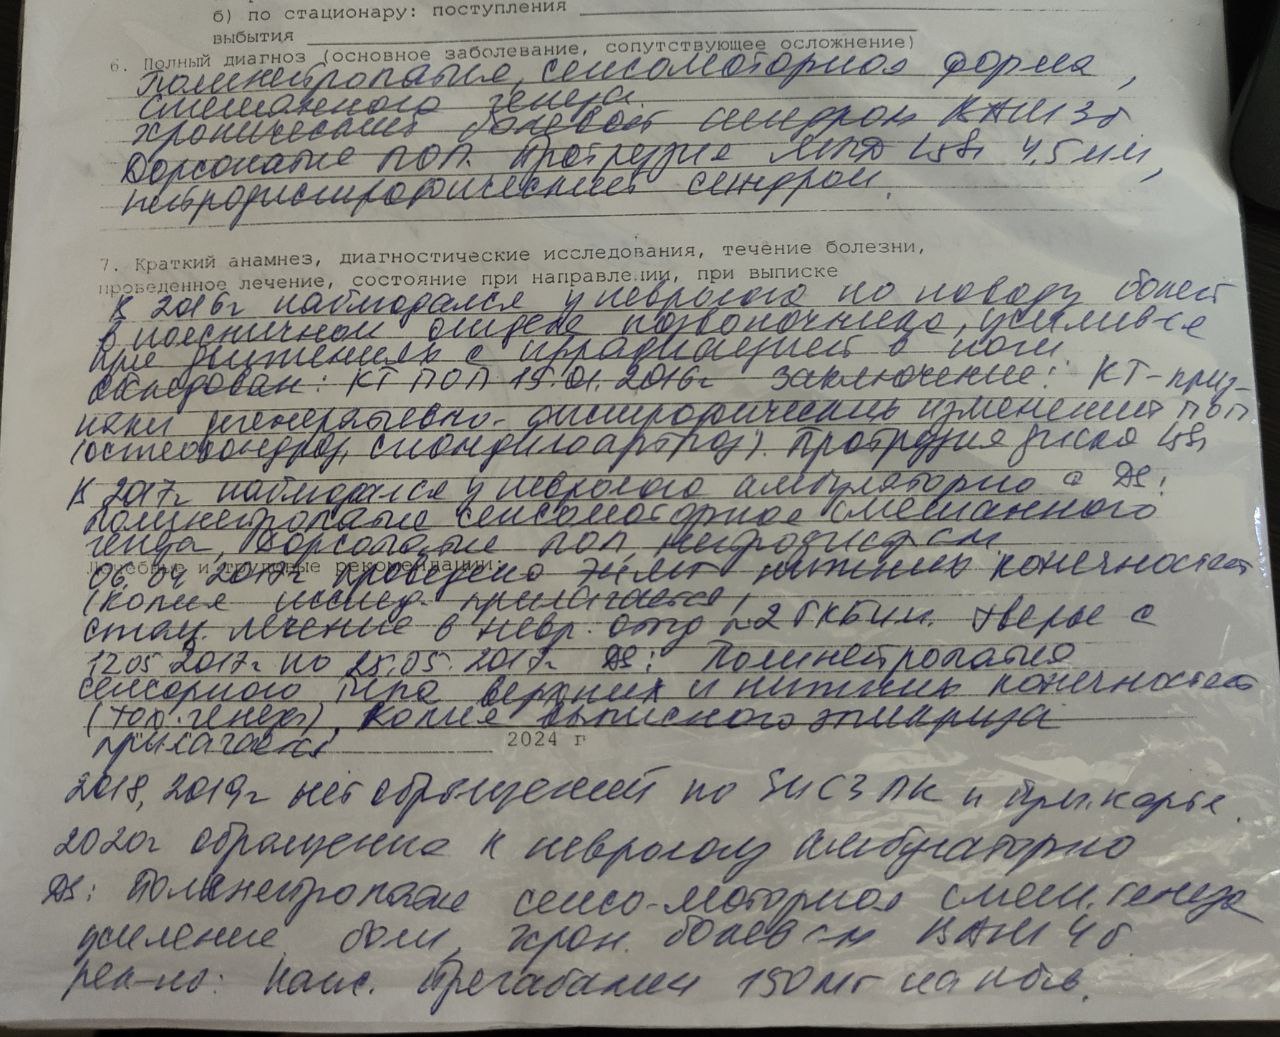 б) по стационару: поступления
выбытия
6. Полный диагноз (основное заболевание, сопутствующее осложнение)
Полинейропатия, сенсомоторная форма,
смешанного генеза.
Хронический болевой синдром ВАШ 3б
Дорсопатия ПОП. Протрузия МПД L5S1 4,5 мм,
нейродистрофический синдром.
7. Краткий анамнез, диагностические исследования, течение болезни,
проведенное лечение, состояние при направлении, при выписке
В 2016г наблюдался у невролога по поводу болей
в поясничном отделе позвоночника, усилив-ся
при движениях с иррадиацией в ноги.
Обследован: КТ ПОП 15.01.2016г заключение: КТ-приз-
наки дегенеративно-дистрофических изменений ПОП
(остеохондроз, спондилоартроз). Протрузия диска L5S1
В 2017г наблюдался у невролога амбулаторно с DS:
полинейропатия сенсомоторная смешанного
генеза, Дорсопатия ПОП, нейродист. с-м.
Лечебные и трудовые рекомендации:
06.04.2017г проведено ЭНМГ нижних конечностей
(копия исслед. прилагается)
стац. лечение в невр. отд ГКБ им. Тверье с
12.05.2017г по 25.05.2017г DS: Полинейропатия
сенсорного типа верхних и нижних конечностей
(генеза), копия выписного эпикриза
прилагается
2024 г
2018, 2019г нет обращений по ЕИСЗ ПК и карте.
2020г обращение к неврологу амбулаторно
DS: Полинейропатия сенсо-моторная смеш. генеза
усиление боли, хрон. болев с-м ВАШ 4б
рек-но: капс. Прегабалин 150мг на ночь.